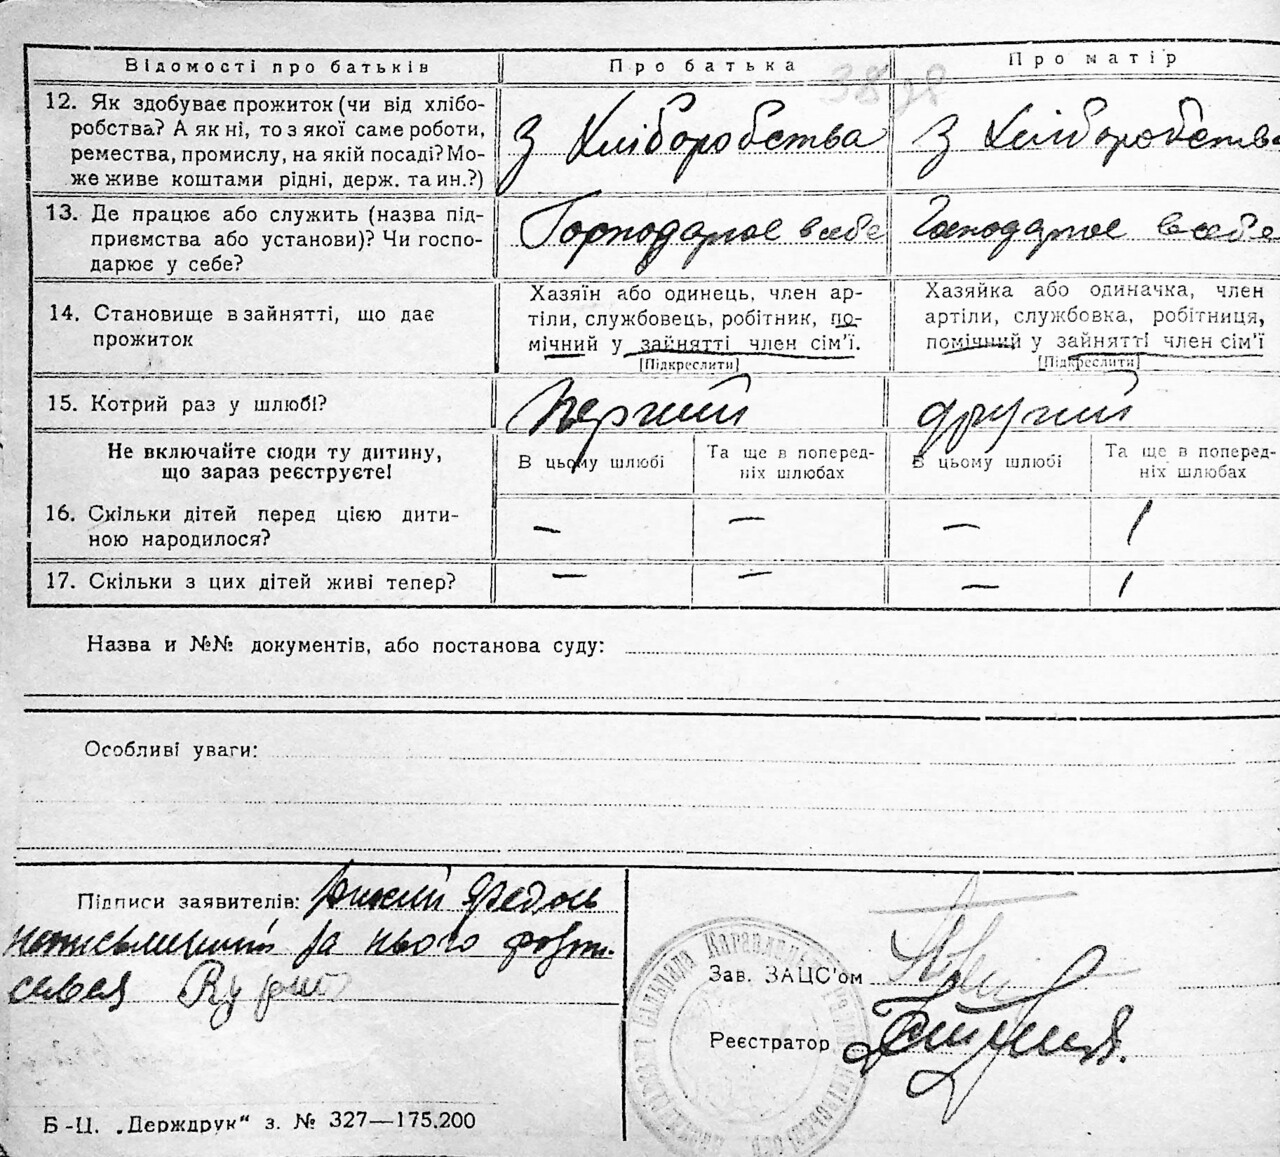 Відомості про батьків
Про батька
Про матір
38
12. Як здобуває прожиток (чи від хлібо-
робства? А як ні, то з якої саме роботи,
ремества, промислу, на якій посаді? Мо-
же живе коштами рідні, держ. та ин.?)
З Хліборобства
З Хліборобства
13. Де працює або служить (назва під-
приємства або установи)? Чи госпо-
дарює у себе?
Господарює в себе
Господарює в себе
14. Становище в зайнятті, що дає
прожиток
Хазяїн або одинець, член ар-
тілі, службовець, робітник, по-
мічний у зайнятті член сім'ї.
[Підкреслити]
Хазяйка або одиначка, член
артілі, службовка, робітниця,
помічний у зайнятті член сім'ї
[Підкреслити]
15. Котрий раз у шлюбі?
Перший
другий
Не включайте сюди ту дитину,
що зараз реєструєте!
В цьому шлюбі
Та ще в поперед-
ніх шлюбах
В цьому шлюбі
Та ще в поперед-
ніх шлюбах
16. Скільки дітей перед цією дити-
ною народилося?
— — — 1
17. Скільки з цих дітей живі тепер?
— — — 1
Назва и №№ документів, або постанова суду:
Особливі уваги:
Підписи заявителів: Федось
неписьменний за нього розпи-
сався
Зав. ЗАЦС'ом
Реєстратор
Б-Ц. „Держдрук" з. № 327—175.200